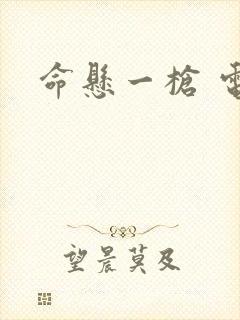 命懸一槍
望晨莫及